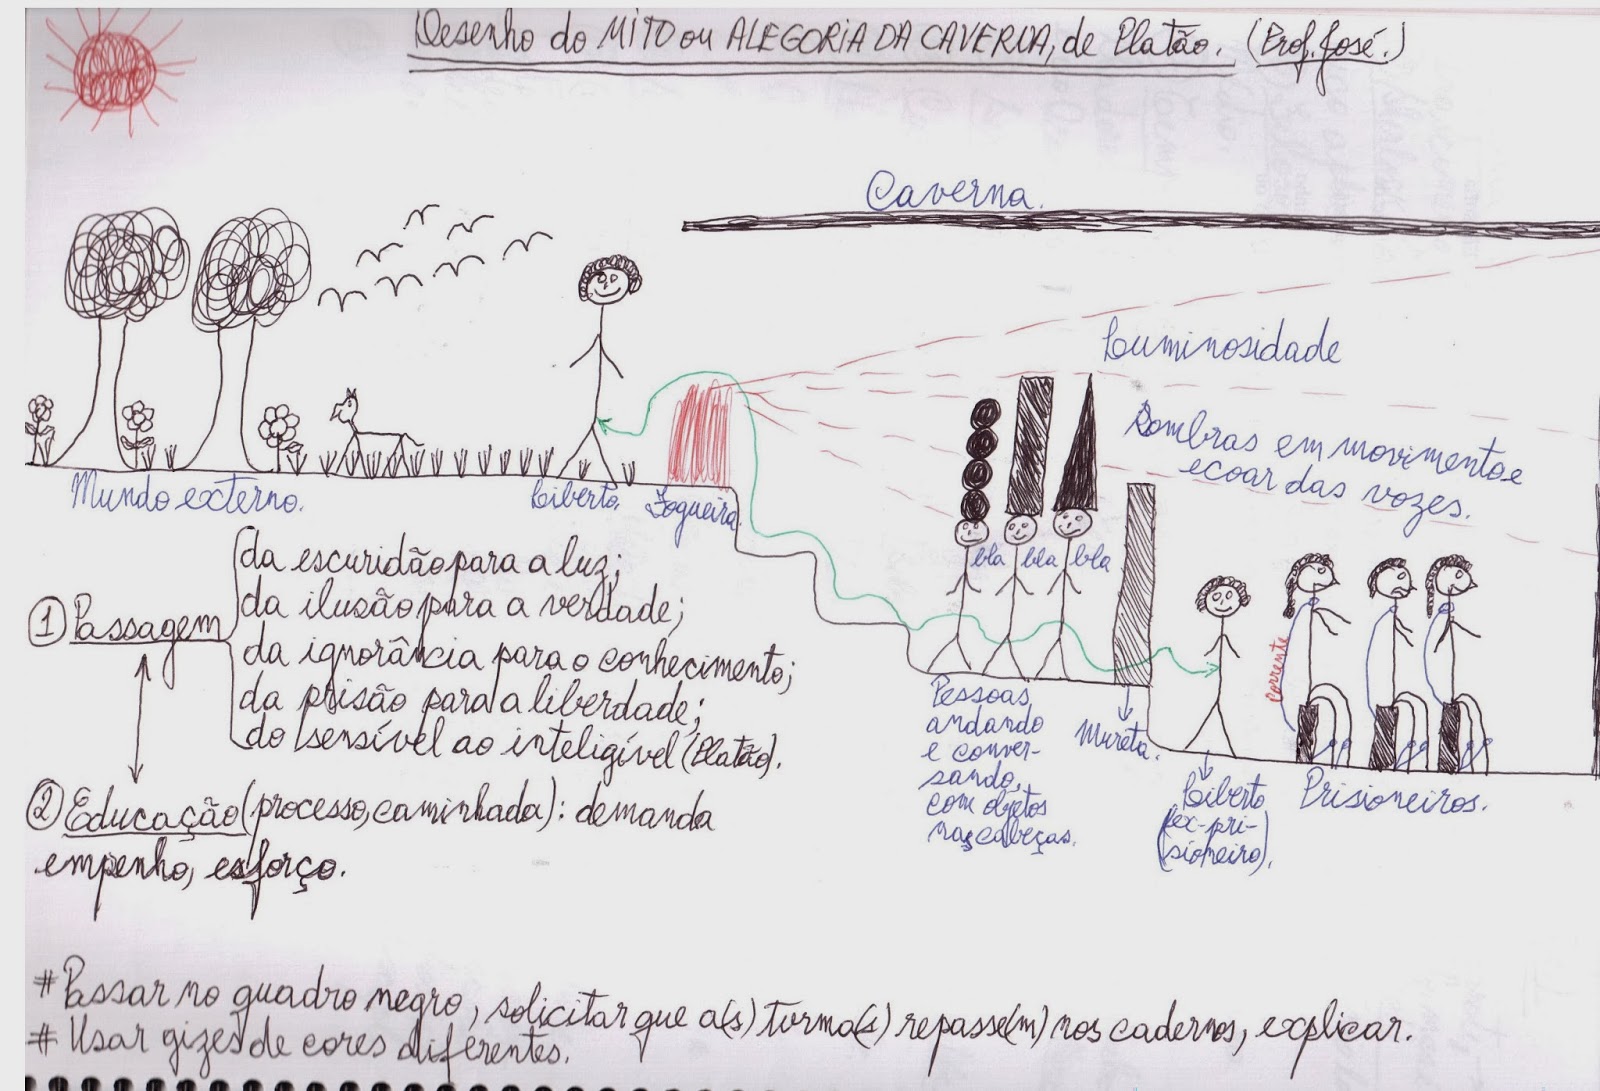 Desenho do MITO ou ALEGORIA DA CAVERNA, de Platão. (Prof. José.)
Caverna.
Luminosidade
Sombras em movimento e
ecoar das vozes.
Mundo externo.
Liberto.
Fogueira.
bla bla bla
corrente
Pessoas
andando
e conver-
sando,
com objetos
nas cabeças.
Mureta.
Liberto
(ex-pri-
sioneiro).
Prisioneiros.
① Passagem
da escuridão para a luz;
da ilusão para a verdade;
da ignorância para o conhecimento;
da prisão para a liberdade;
do sensível ao inteligível (Platão).
② Educação (processo, caminhada): demanda
empenho, esforço.
# Passar no quadro negro, solicitar que a(s) turma(s) repasse(m) nos cadernos, explicar.
# Usar gizes de cores diferentes.